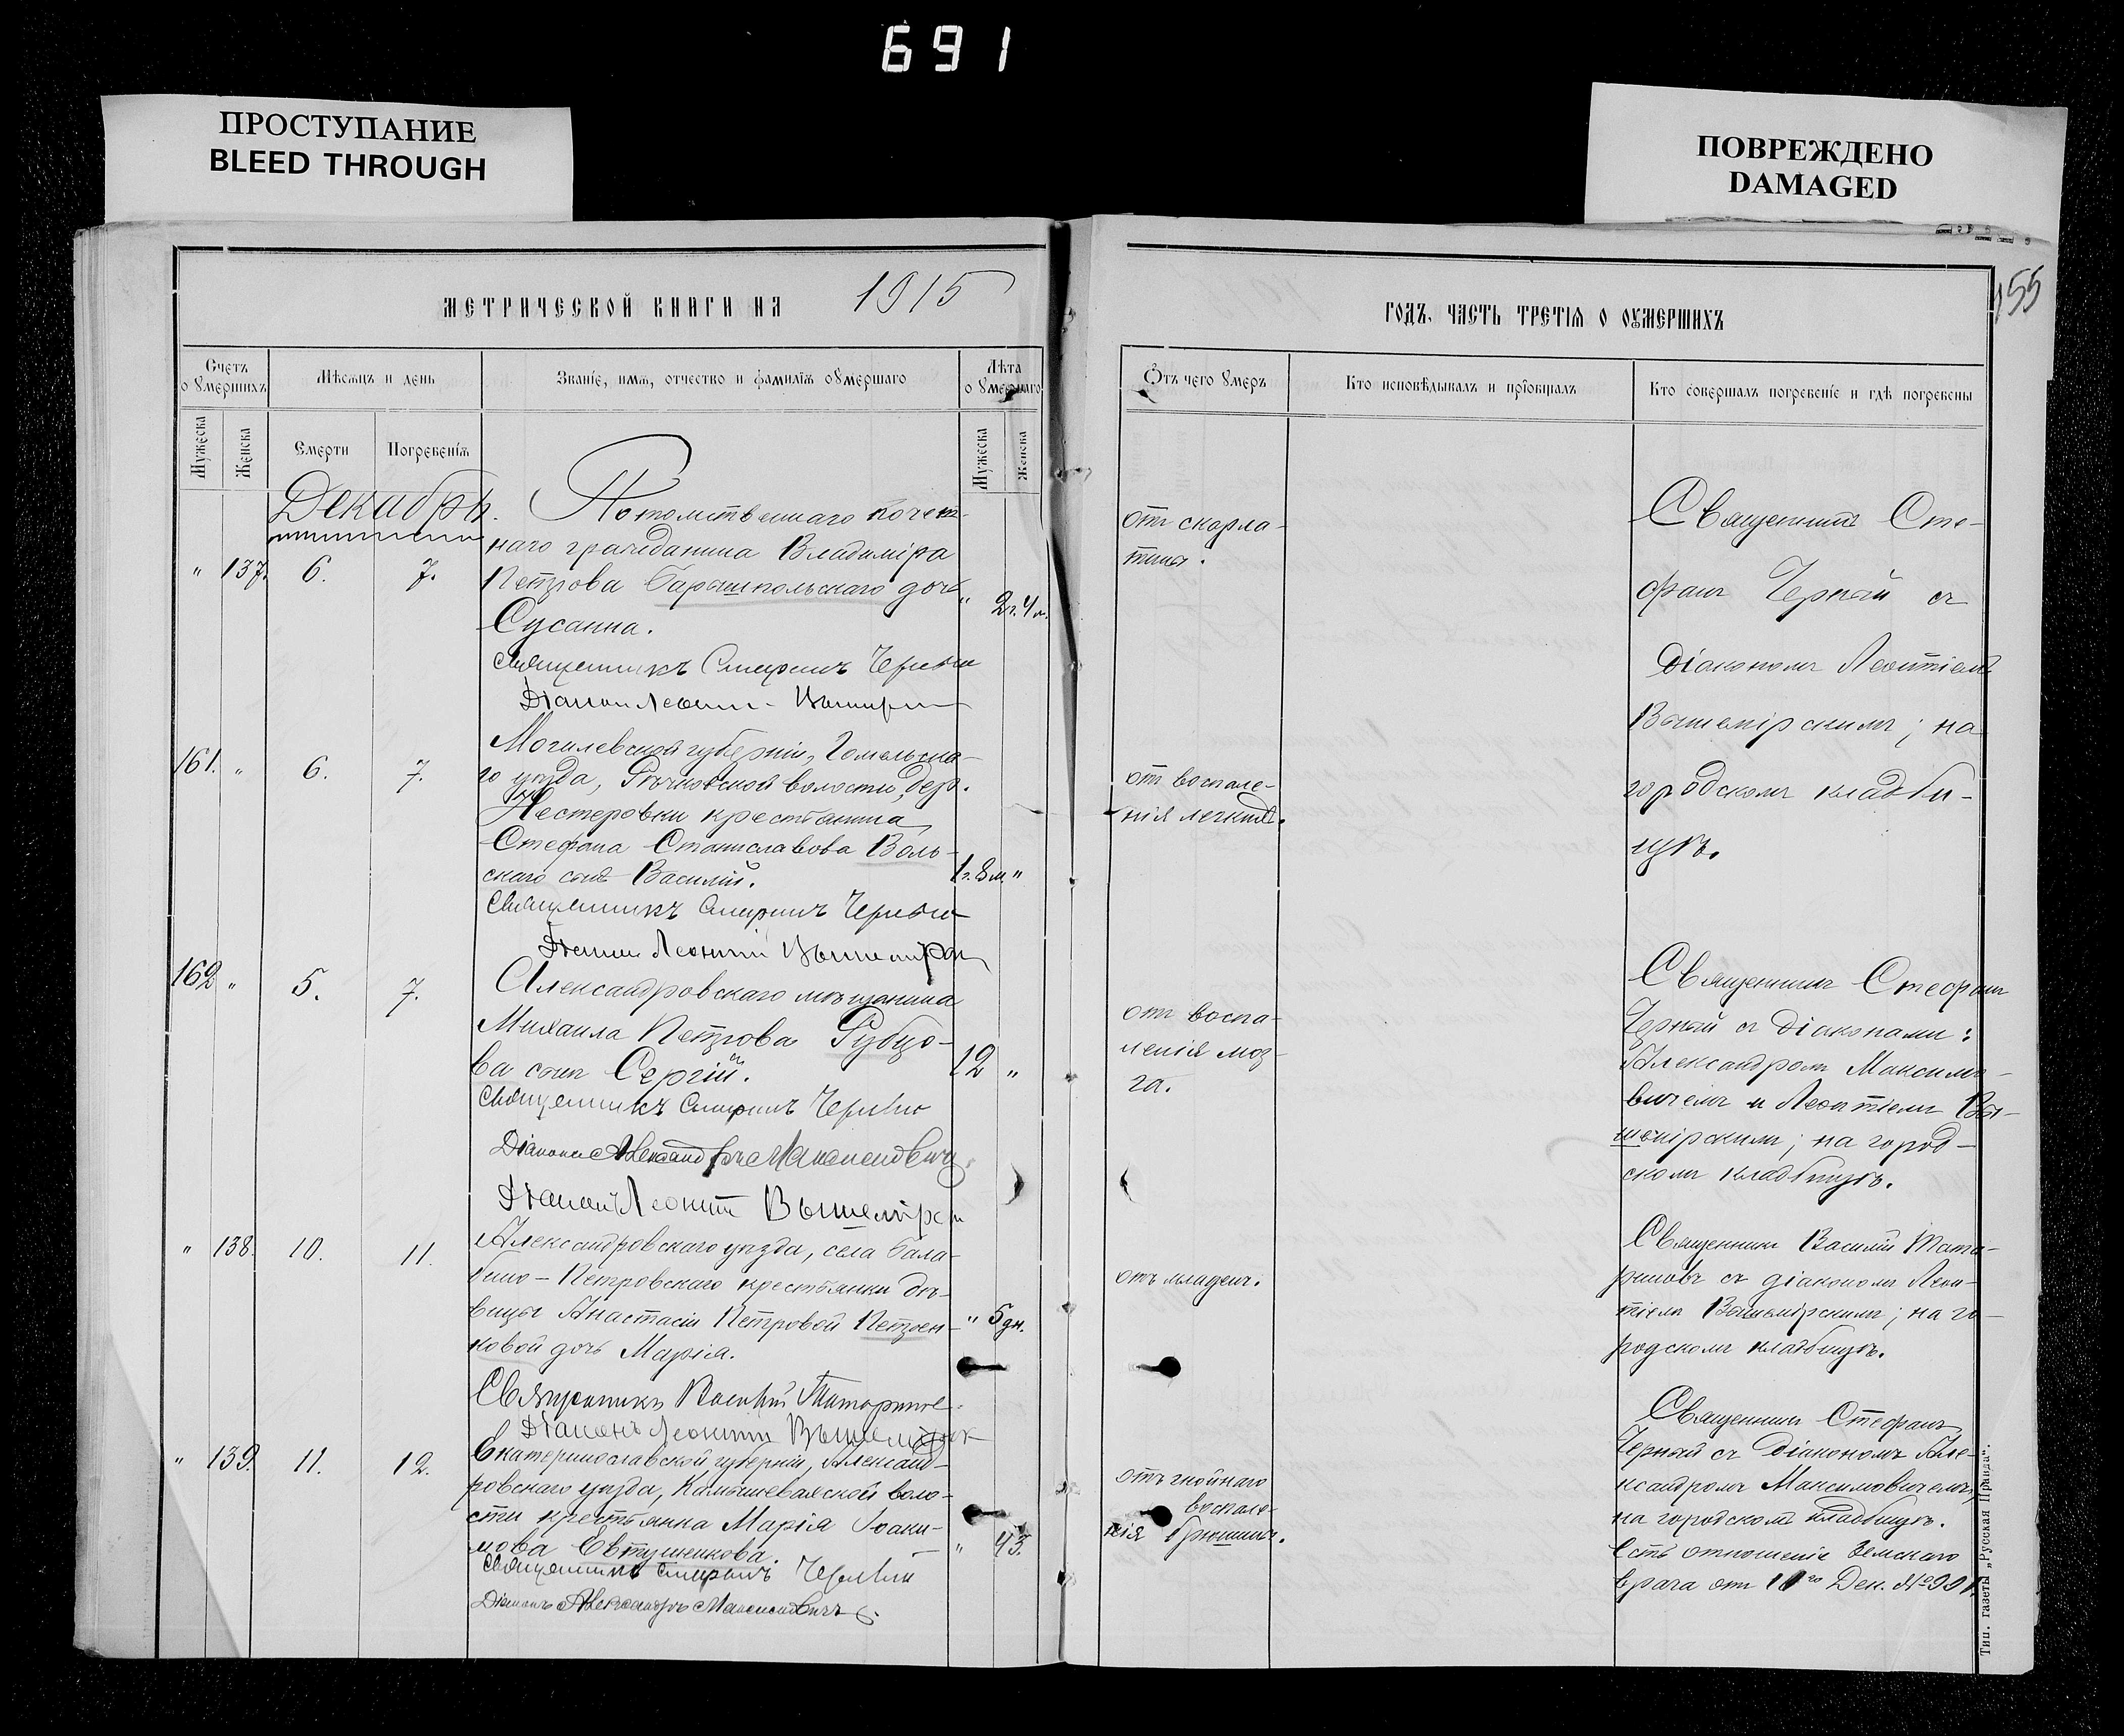 691
ПРОСТУПАНИЕ
BLEED THROUGH
ПОВРЕЖДЕНО
DAMAGED
МЕТРИЧЕСКОЙ КНИГИ НА 1915
ГОДЪ, ЧАСТЬ ТРЕТІЯ О ОУМЕРШИХЪ
155
Счетъ оумершихъ
Мѣсяцъ и день
Званіе, имя, отчество и фамилія оумершаго
Лѣта оумершаго
Отъ чего оумеръ
Кто исповѣдывалъ и пріобщалъ
Кто совершалъ погребеніе и гдѣ погребены
Мужеска
Женска
Смерти
Погребенія
Мужеска
Женска
Декабрь.
" 137. 6. 7.
Потомственнаго почет-
наго гражданина Владиміра
Петрова Барышпольскаго дочь
Сусанна.
" 2г. 4м.
Священникъ Стефанъ Черный
Діаконъ Леонтій
отъ скарла-
тины.
Священникъ Сте-
фанъ Черный съ
Діакономъ Леонтіемъ
Вышемірскимъ; на
городскомъ кладби-
щѣ.
161. " 6. 7.
Могилевской губерніи, Гомельска-
го уѣзда, волости, дер.
Нестеровки крестьянина
Стефана Станиславова Воль-
скаго сынъ Василій.
1г. 8м. "
Священникъ Стефанъ Черный
Діаконъ Леонтій Вышемірскі
от воспале-
нія легкихъ.
162 " 5. 7.
Александровскаго мѣщанина
Михаила Петрова Рубцо-
ва сынъ Сергій.
12 "
Священникъ Стефанъ Черный
Діаконъ Александръ Максимовичъ
Діаконъ Леонтій Вышемірскі
отъ воспа-
ленія моз-
га.
Священникъ Стефанъ
Черный съ Діаконами:
Александромъ Максимо-
вичемъ и Леонтіемъ Вы-
шемірскимъ; на город-
скомъ кладбищѣ.
" 138. 10. 11.
Александровскаго уѣзда, села Бала-
бино-Петровскаго крестьянки дѣ-
вицы Анастасіи Петровой Петрен-
ковой дочь Марія.
" 5 дн.
Священникъ Василій Татариновъ
Діаконъ Леонтій Вышемірск
отъ младен.
Священникъ Василій Тата-
риновъ съ діакономъ Леон-
тіемъ Вышемірскимъ; на го-
родскомъ кладбищѣ.
" 139. 11. 12.
Екатеринославской губерніи, Александ-
ровскаго уѣзда, Камышевахской воло-
сти крестьянка Марія Іоаки-
мова Евтушенкова.
" 43.
Священникъ Стефанъ Черный
Діаконъ Александръ Максимовичъ
отъ гнойнаго
воспале-
нія брюшины.
Священникъ Стефанъ
Черный съ Діакономъ Але-
ксандромъ Максимовичемъ,
на городскомъ кладбищѣ.
Есть отношеніе Земскаго
врача отъ 11го Дек. №991
Тип. газеты „Русская Правда".